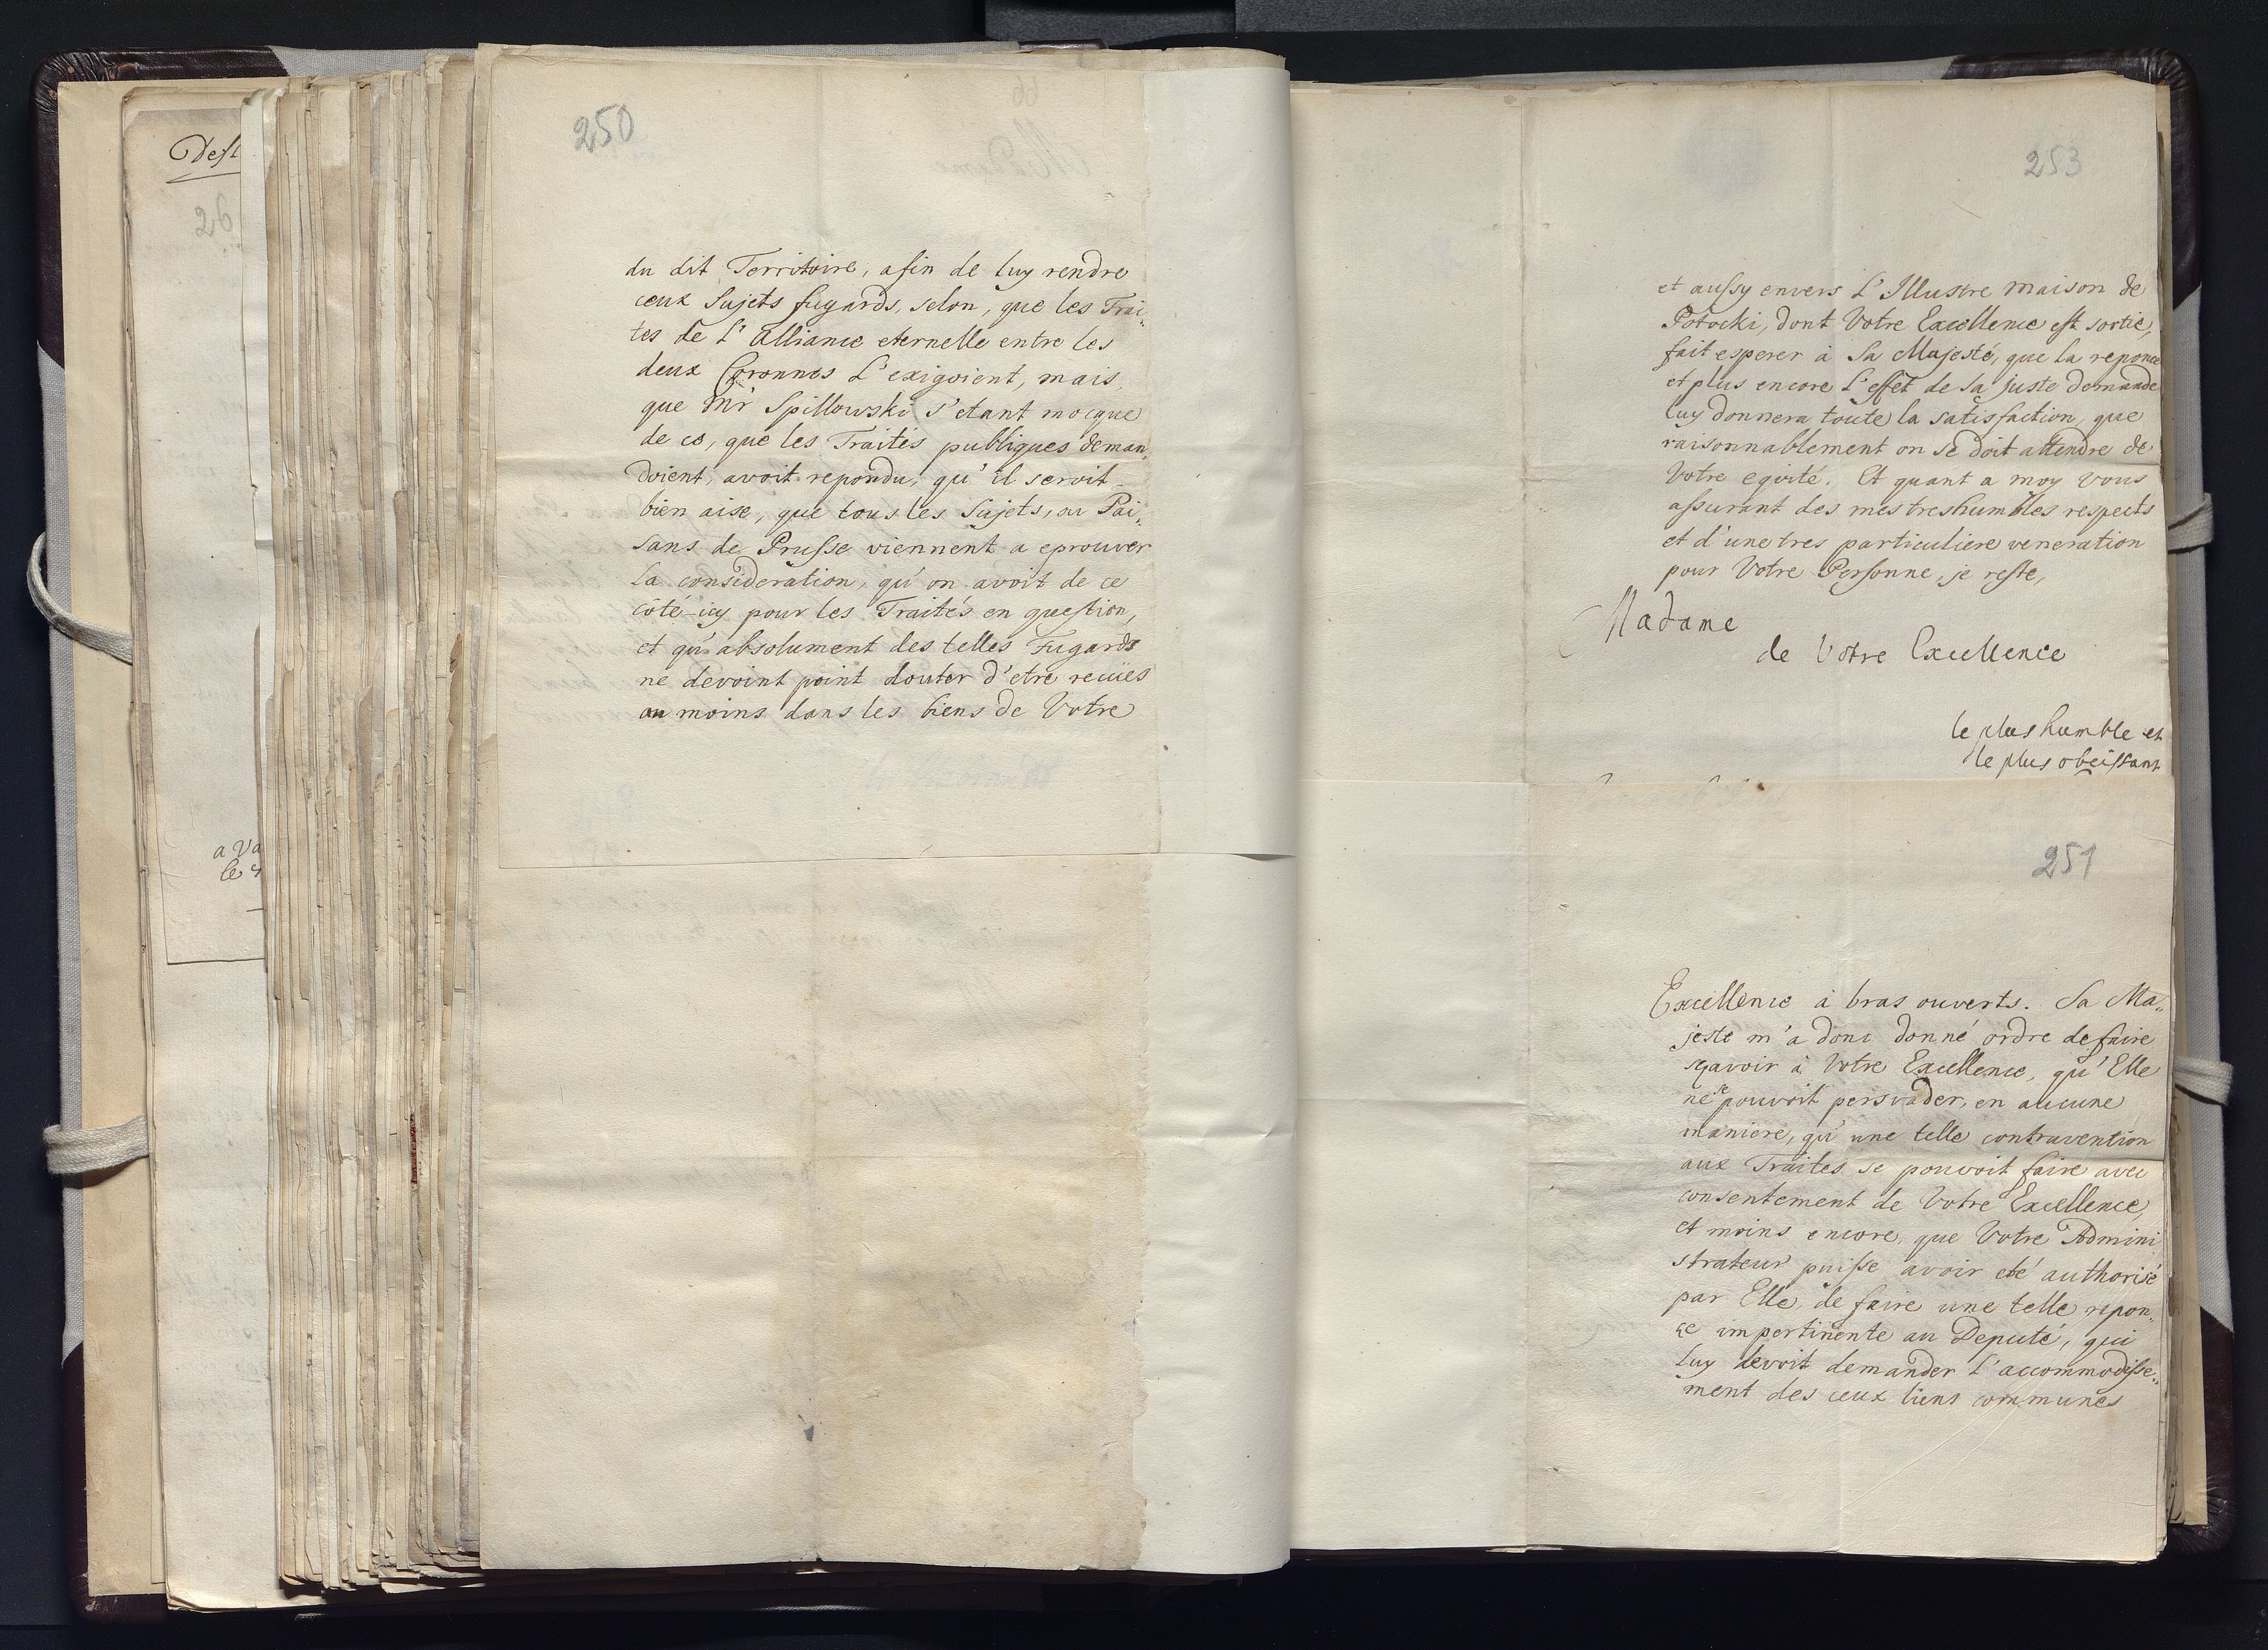 Dest
26
a Va
le
250
du dit Territoire, afin de luy rendre
ceux Sujets fugards, selon, que les Trai„
tes de l'Alliance eternelle entre les
deux Coronnes l'exigoient, mais,
que Mr Spillowski s'etant mocque
de ce, que les Traités publiques deman„
doient, avoit repondu, qu'il seroit
bien aise, que tous les Sujets, ou Pai„
sans de Prusse viennent a eprouver
la consideration, qu'on avoit de ce
côté-icy pour les Traités en question,
et qu'absolument des telles Fugards
ne devoint point douter d'etre recües
au moins dans les biens de Votre
253
et aussy envers l'Illustre maison de
Potocki, dont Votre Excellence est sortie,
fait esperer à Sa Majesté, que la reponce
et plus encore l'effet de sa juste demande
luy donnera toute la satisfaction, que
raisonnablement on se doit attendre de
Votre eqvité. Et quant a moy vous
assurant des mes treshumbles respects
et d'une tres particuliere veneration
pour Votre Personne, je reste,
Madame
de Votre Excellence
le plus humble et
le plus obeissant
251
Excellence à bras ouverts. Sa Ma„
jesté m'a donc donné ordre de faire
sçavoir à Votre Excellence, qu'Elle
ne se pouvoit persvader, en aucune
maniere, qu'une telle contravention
aux Traités se pouvoit faire avec
consentement de Votre Excellence,
et moins encore, que Votre Admini
strateur puisse avoir eté authorisé
par Elle, de faire une telle repon„
ce impertinente au Deputé, qui
luy devoit demander l'accommodisse„
ment des ceux liens communes